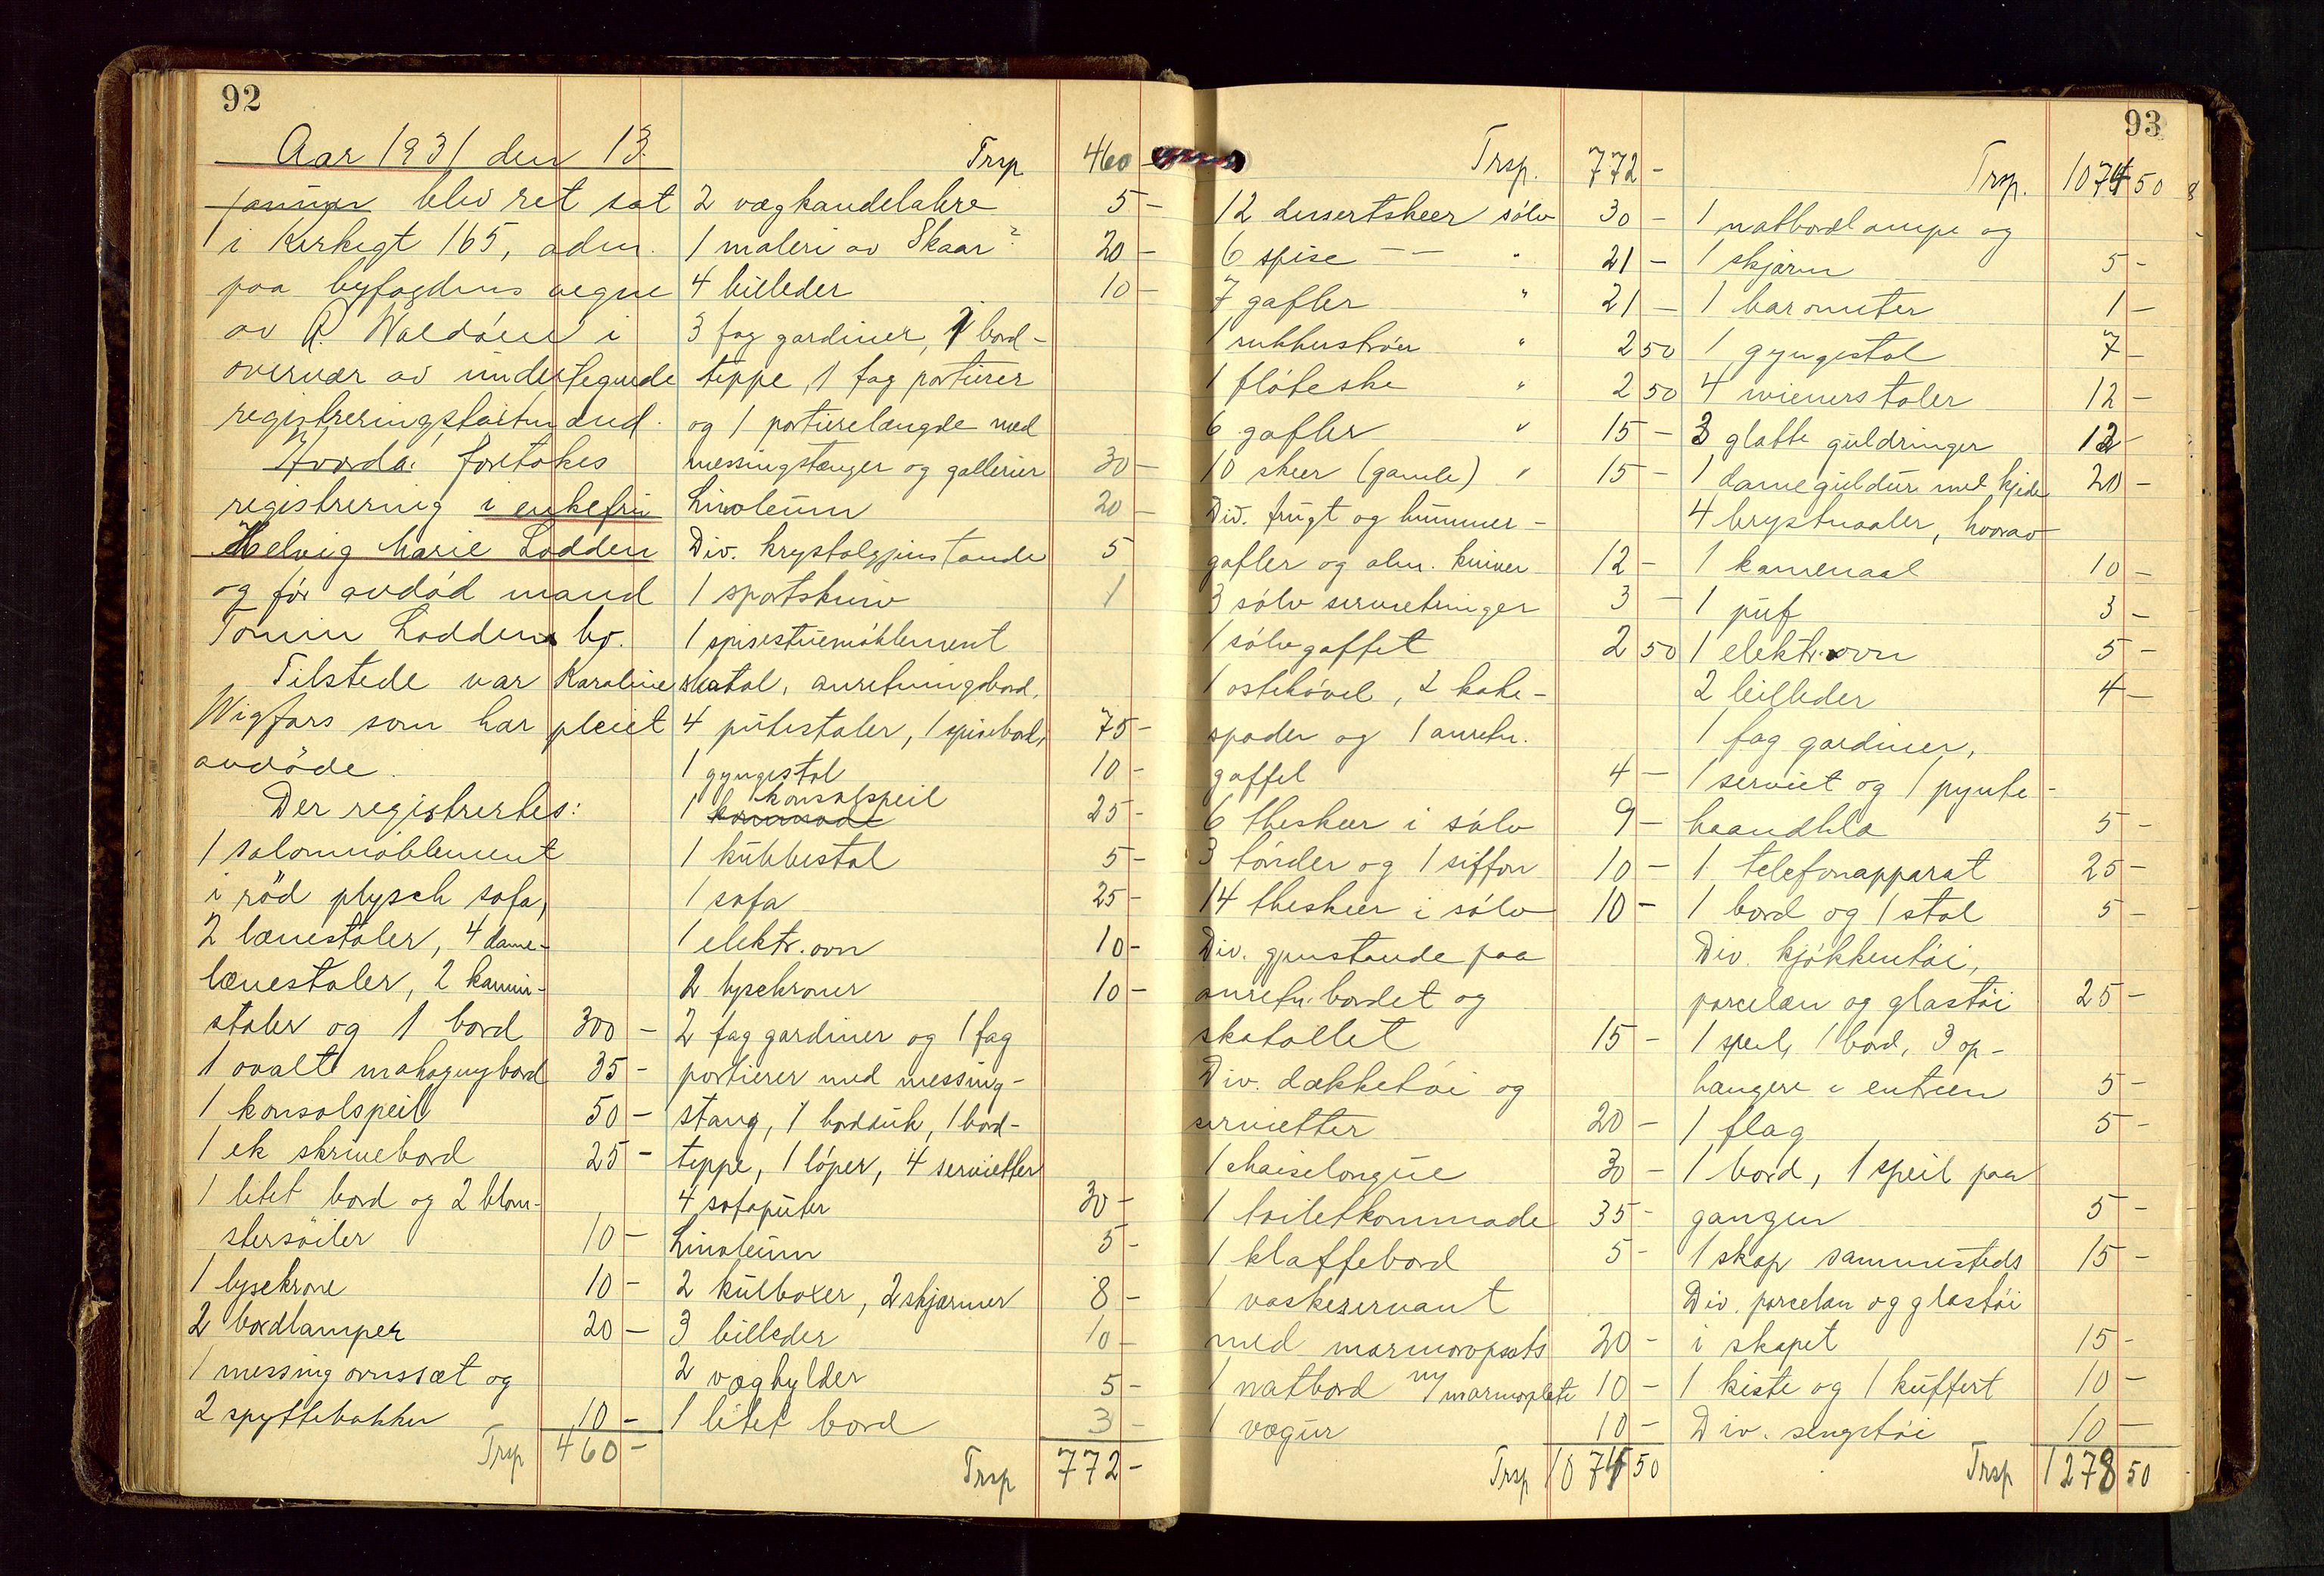 92
Aar 1931 den 13.
januar blev ret sat
i Kirkegt 165, adm.
paa byfogdens vegne
av R. Waldøen i
overvær av undertegnede
registreringsforstand.
Hvorda: foretokes
registrering i enkefru
Helvig Marie Lodden
og før avdød mand
Tomin Loddens bo.
Tilstede var Karoline
Wigfors som har pleiet
avdøde.
Der registrertes:
1 salonmøblement
i rød plysch sofa,
2 lænestoler, 4 dame-
lænestoler, 2 kamin-
stoler og 1 bord 300 -
1 ovalt mahognybord 35 -
1 konsolspeil 50 -
1 ek skrivebord 25 -
1 litet bord og 2 blom-
stersøiler 10 -
1 lysekrone 10 -
2 bordlamper 20 -
1 messing ovnssæt og
2 spyttebakker 10 -
Trsp 460 -
Trsp 460 -
2 vægkandelabre 5 -
1 maleri av Skaar? 20 -
4 billeder 10 -
3 fag gardiner, 1 bord-
teppe, 1 fag portierer
og 1 portierelængde med
messingstænger og gallerier 30 -
Linoleum 20 -
Div. krystalgjenstande 5
1 sportskniv 1
1 spisestuemøblement
skatol, anretningsbord,
4 putestoler, 1 spisebord, 75 -
1 gyngestol 10 -
konsolspeil
1 kommode 25 -
1 kubbestol 5 -
1 sofa 25 -
1 elektr. ovn 10 -
2 lysekroner 10 -
2 fag gardiner og 1 fag
portierer med messing-
stang, 1 bordduk, 1 bord-
teppe, 1 løper, 4 servietter
4 sofaputer 30 -
Linoleum 5 -
2 kulboxer, 2 skjærmer 8 -
3 billeder 10 -
2 væghylder 5 -
1 litet bord 3 -
Trsp 772 -
Trsp. 772 -
12 dessertskeer sølv 30 -
6 spise - - " 21 -
7 gafler " 21 -
1 sukkerstrøer " 2 50
1 fløteske " 2 50
6 gafler " 15 -
10 skeer (gamle) " 15 -
Div. frugt og hummer-
gafler og alm. kniver 12 -
3 sølv servietringer 3 -
1 sølvgaffel 2 50
1 ostehøvel, 2 kake-
spader og 1 anretn.
gaffel 4 -
6 theskeer i sølv 9 -
3 tønder og 1 siffon 10 -
14 theskeer i sølv 10 -
Div. gjenstande paa
anretn. bordet og
skatollet 15 -
Div. dækketøi og
servietter 20 -
1 chaiselongue 30 -
1 toiletkommode 35 -
1 klaffebord 5 -
1 vaskeservant
med marmorplate 20 -
1 natbord m/marmorplate 10 -
1 vægur 10 -
Trsp 1074 50
93
Trsp. 1074 50
1 natbordlampe og
1 skjærm 5 -
1 barometer 1 -
1 gyngestol 7 -
4 wienerstoler 12 -
3 glatte guldringer 12 -
1 dameguldur med kjede 20 -
4 brystnaaler, hvorav
1 kamenaal 10 -
1 puf 3 -
1 elektr. ovn 5 -
2 billeder 4 -
1 fag gardiner,
1 serviet og 1 pynte-
haandklæ 5 -
1 telefonapparat 25 -
1 bord og 1 stol 5 -
Div. kjøkkentøi,
porcelæn og glastøi 25 -
1 speil, 1 bord, 3 op-
hængere i entreen 5 -
1 flag 5 -
1 bord, 1 speil paa
gangen 5 -
1 skap sammesteds 15 -
Div. porcelæn og glastøi
i skapet 15 -
1 kiste og 1 kuffert 10 -
Div. sengetøi 10 -
Trsp 1278 50